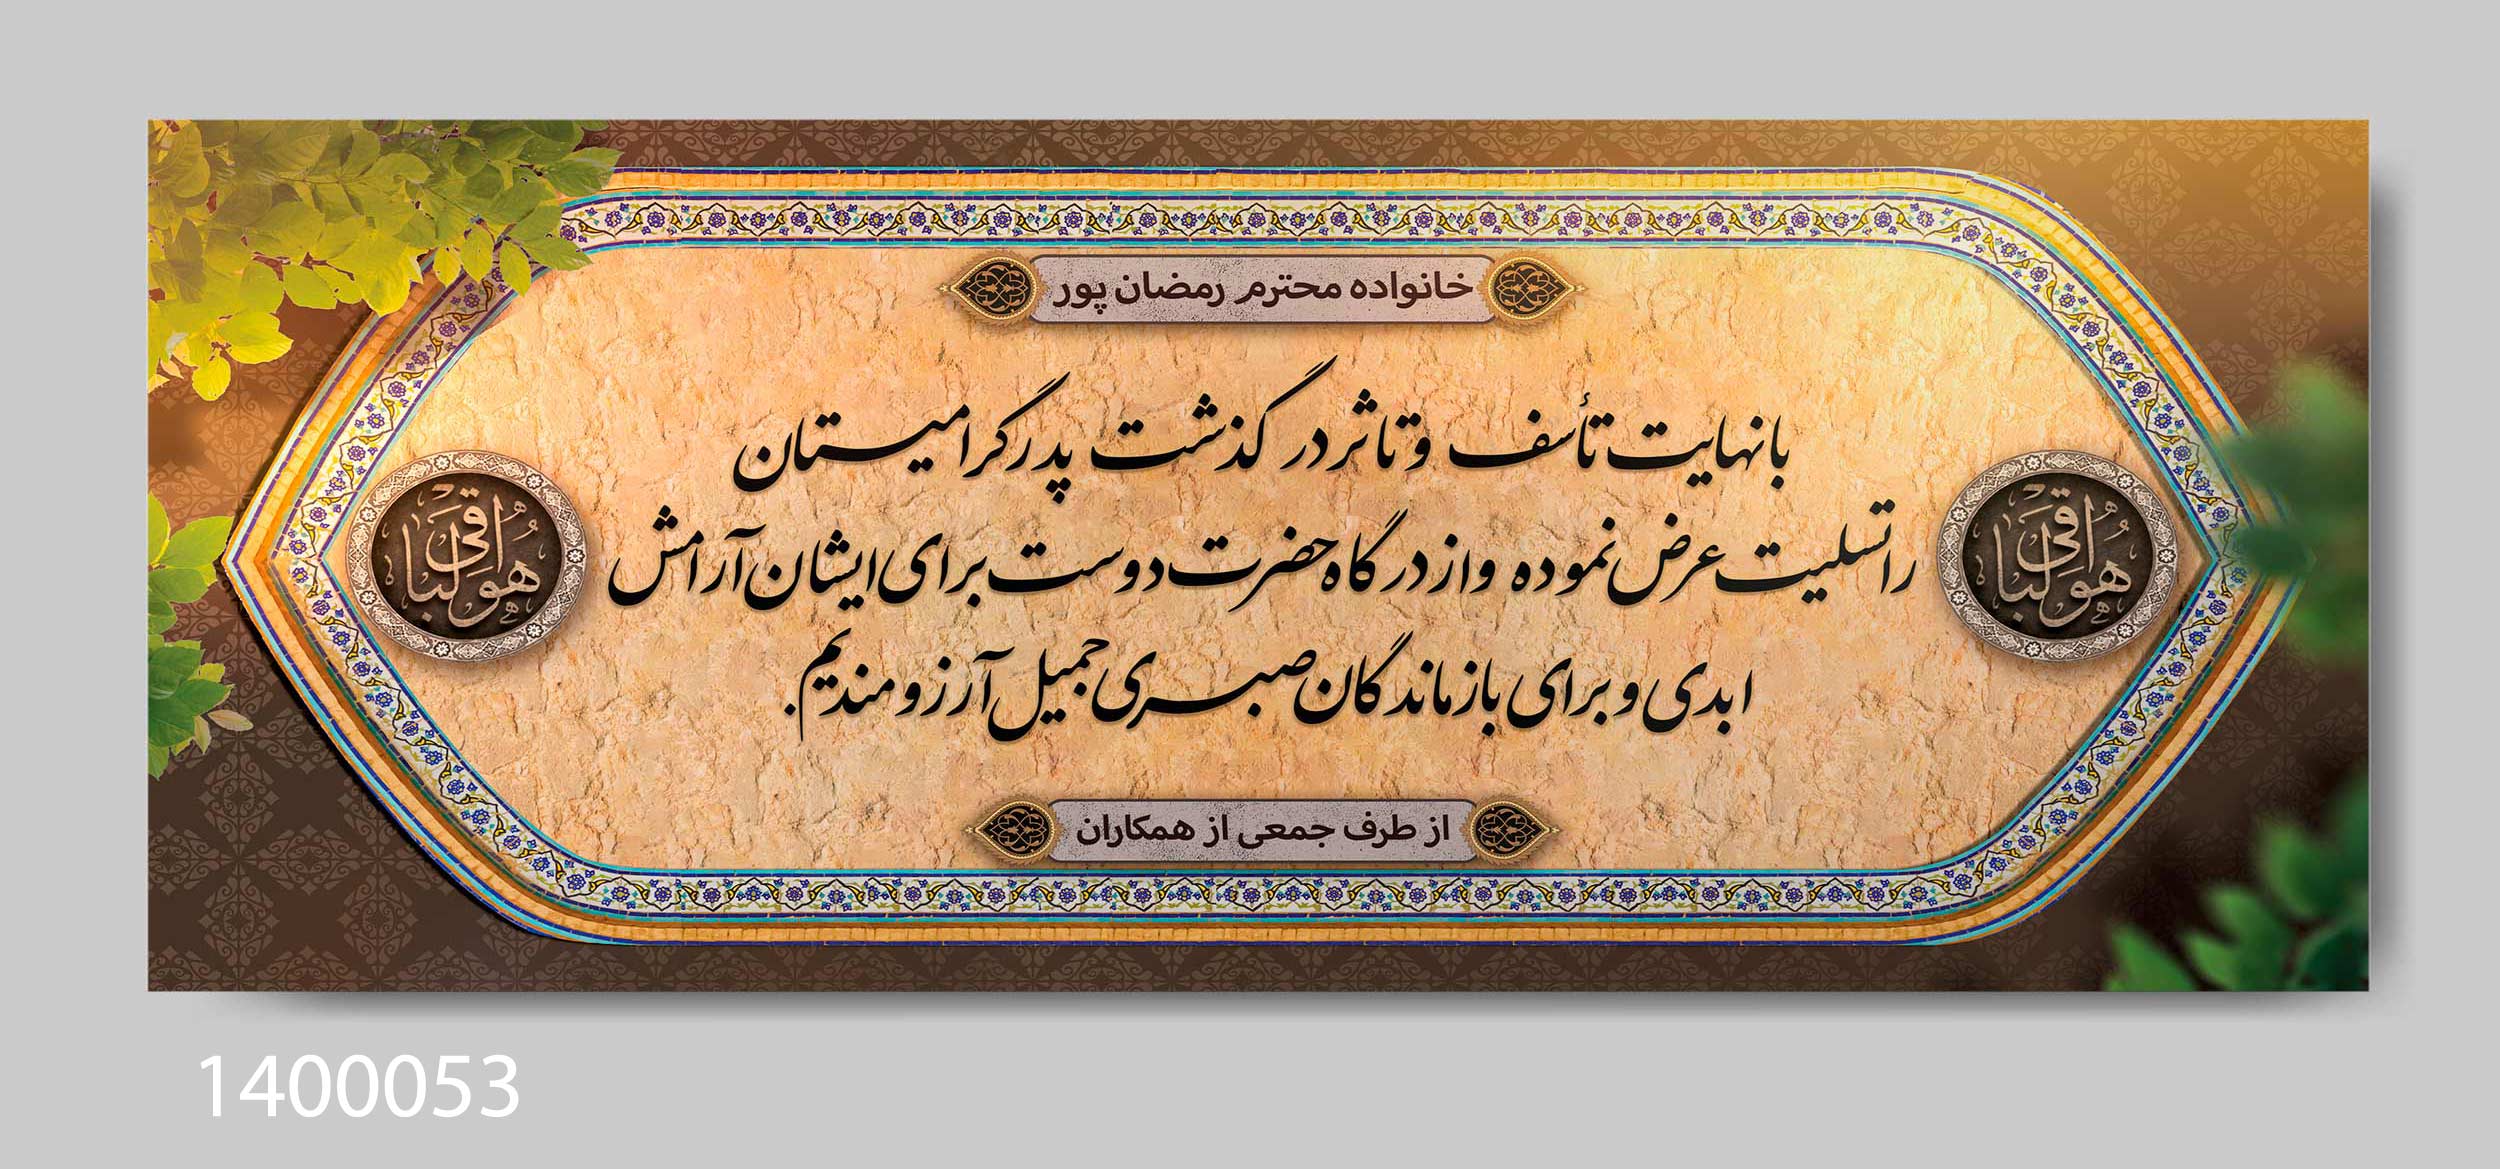 خانواده محترم رمضان پور
با نهایت تأسف و تاثر درگذشت پدر گرامیستان
را تسلیت عرض نموده و از درگاه حضرت دوست برای ایشان آرامش
ابدی و برای بازماندگان صبری جمیل آرزومندیم.
هوالباقی
هوالباقی
از طرف جمعی از همکاران
1400053